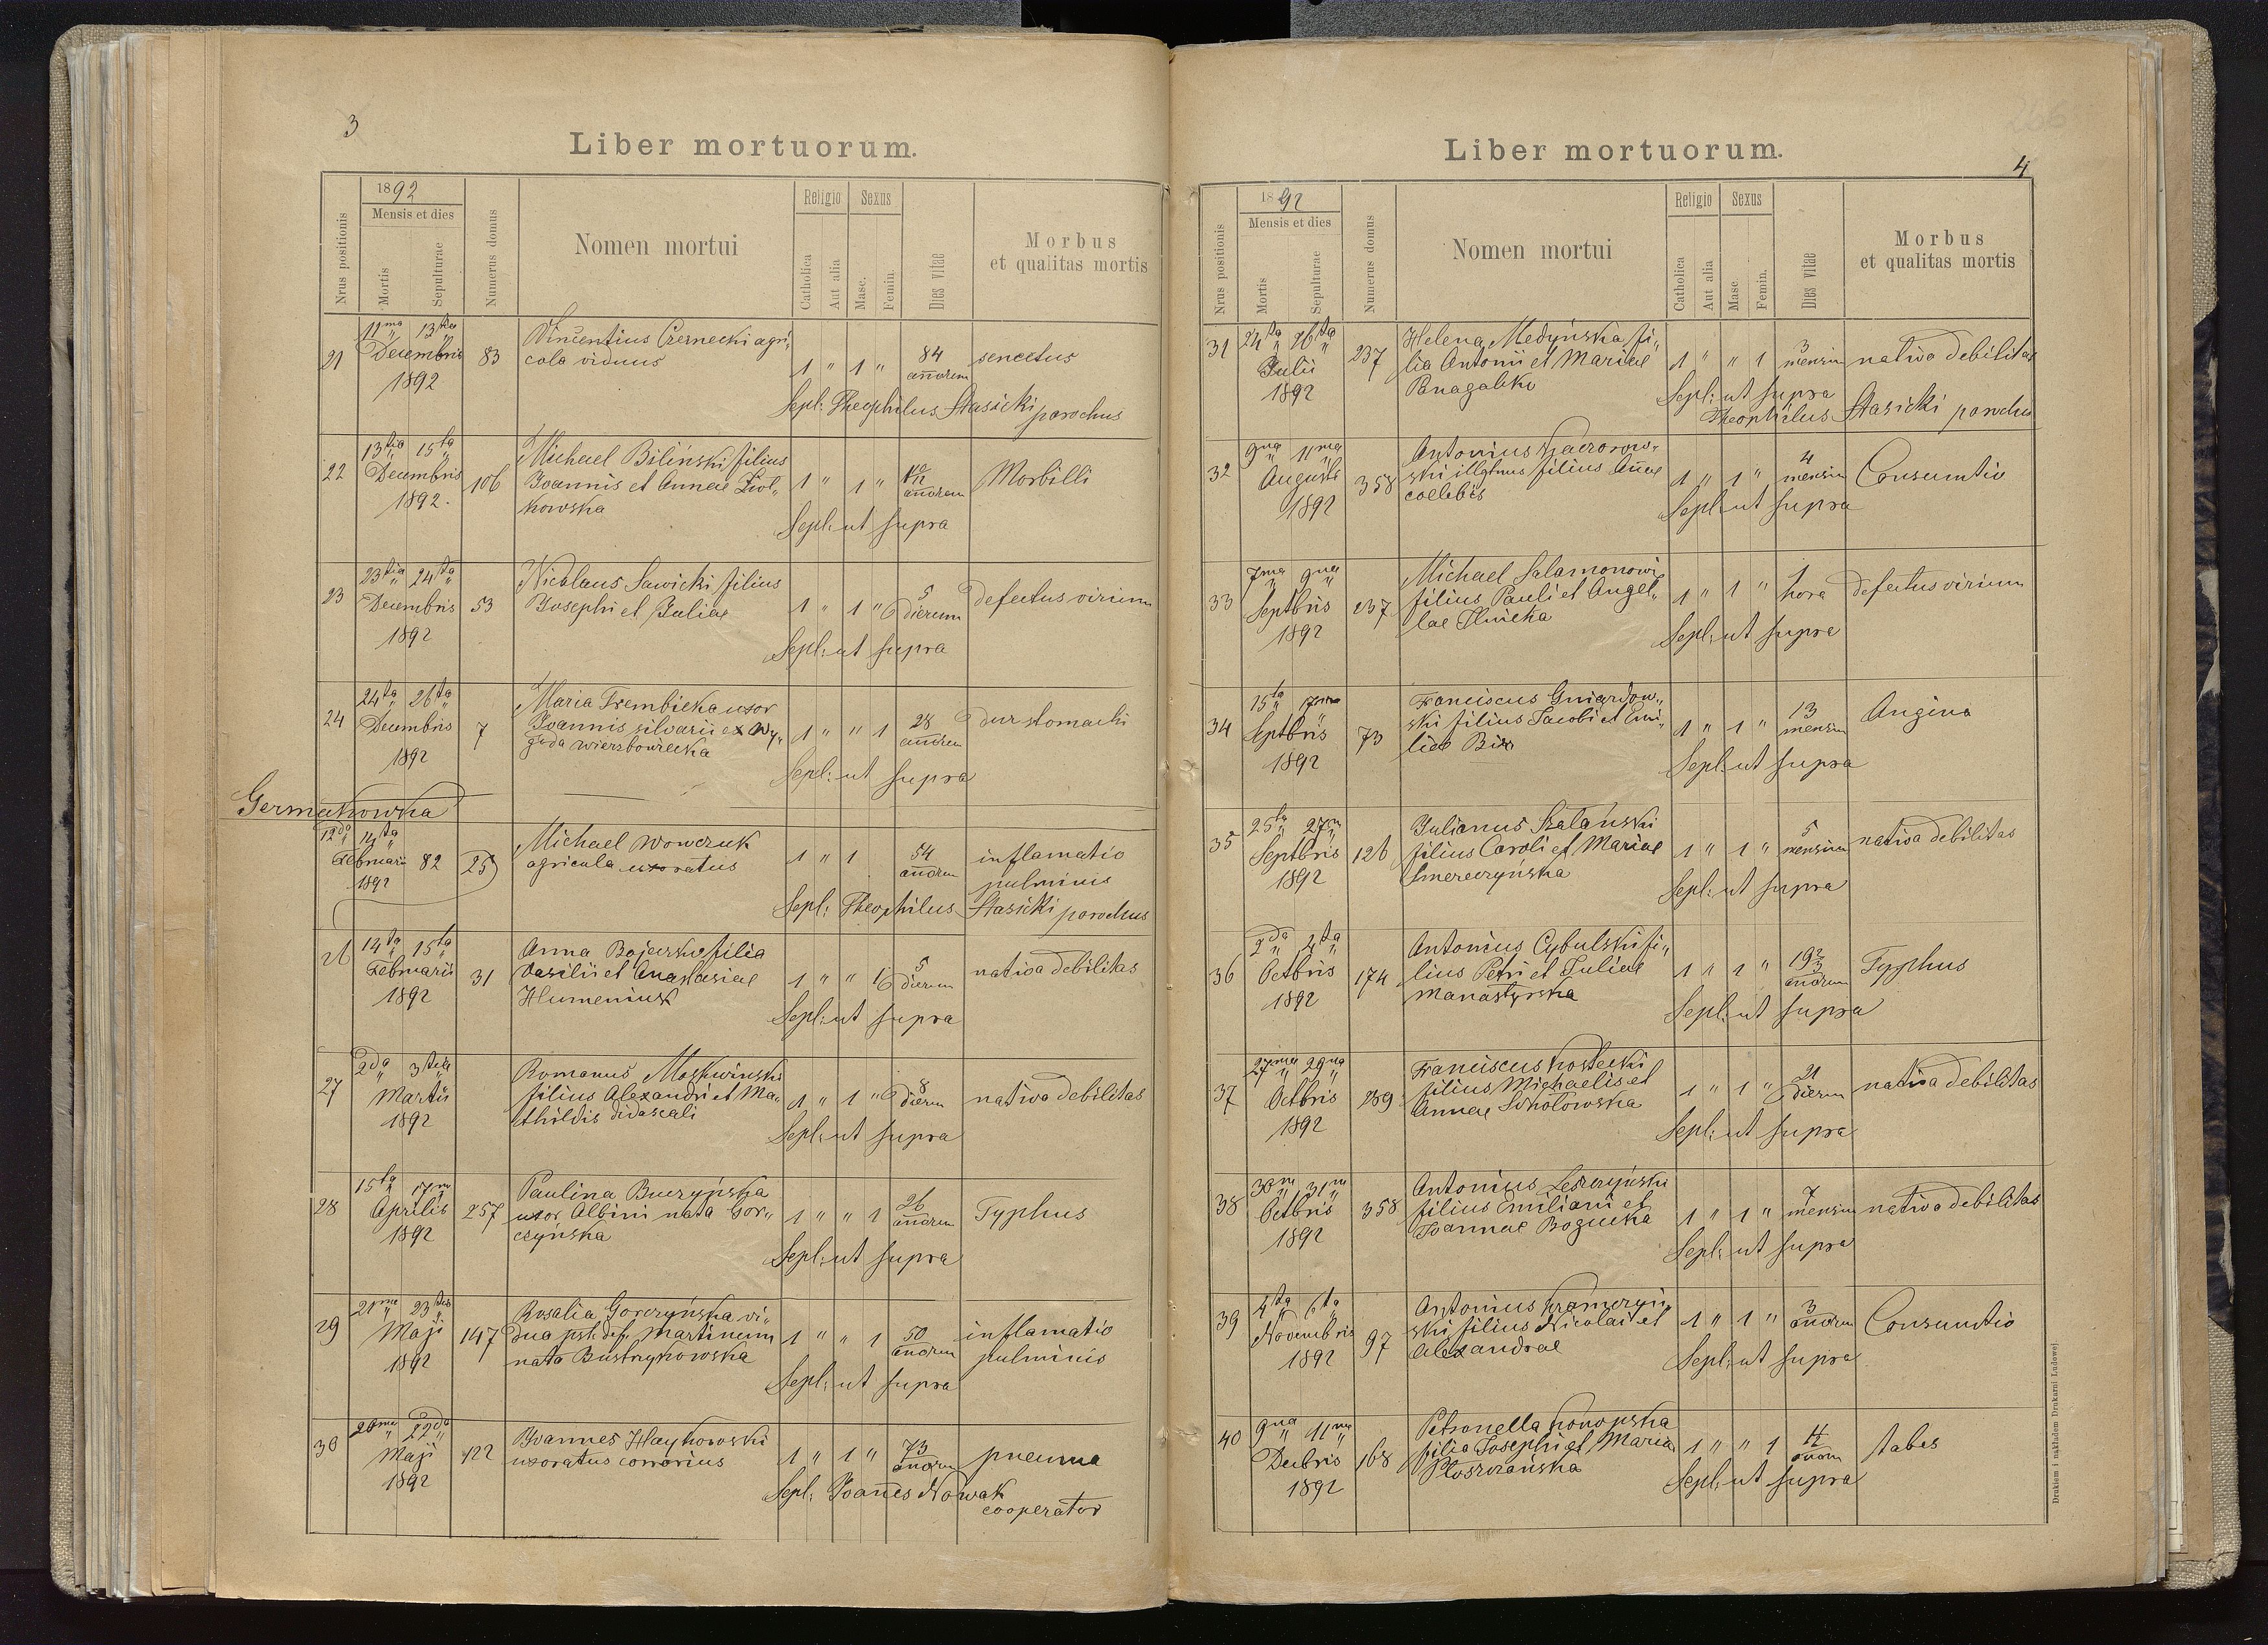 3
Liber mortuorum.
Nrus positionis
1892
Mensis et dies
Mortis
Sepulturae
Numerus domus
Nomen mortui
Religio
Catholica
Aut alia
Sexus
Masc.
Femin.
Dies vitae
Morbus
et qualitas mortis
21
11ma 13tia
Decembris
1892
83
Vincentius Czernecki agri„
cola viduus
1 " 1 "
84
annorum
senectus
Sepl: Theophilus Stasicki parochus
22
13tia 15ta
Decembris
1892.
106
Michael Biliński filius
Joannis et Annae Ziol„
kowska
1 " 1 "
annorum
Morbilli
Sepl: ut supra
23
23tia 24ta
Decembris
1892
53
Nicolaus Sawicki filius
Josephi et Juliae
1 " 1 "
5
dierum
defectus virium
Sepl: ut supra
24
24ta 26ta
Decembris
1892
7
Maria Trembicka uxor
Joannis silvarii ex Wy„
goda Wierzbowiecka
1 " " 1
28
annorum
Sepl: ut supra
Germakowka
12da 14ta
Februarii
1892
82
25
Michael Wowczuk
agricola uxoratus
1 " 1
54
annorum
inflamatio
pulminis
Sepl: Theophilus Stasicki parochus
26
14ta 15ta
Februarii
1892
31
Anna Bojarska filia
Vasilii et Anastasiae
Humeniuk
1 " " 1
5
dierum
nativa debilitas
Sepl: ut supra
27
2da 3tia
Martii
1892
Romanus Moskwiński
filius Alexandri et Ma„
thildis didascali
1 " 1 "
8
dierum
nativa debilitas
Sepl: ut supra
28
15ta 17ma
Aprilis
1892
257
Paulina Buczyńska
uxor Albini nata Gor„
czyńska
1 " " 1
26
annorum
Typhus
Sepl: ut supra
29
21ma 23tia
Maji
1892
147
Rosalia Gorczyńska vi„
dua pst. def. Martinum
nata Bustrykowska
1 " " 1
50
annorum
inflamatio
pulminis
Sepl: ut supra
30
20ma 22da
Maji
1892
122
Joannes Haykowski
uxoratus
1 " 1 "
73
annorum
pneuma
Sepl: Joannes Nowak
cooperator
Liber mortuorum.
4
Nrus positionis
1892
Mensis et dies
Mortis
Sepulturae
Numerus domus
Nomen mortui
Religio
Catholica
Aut alia
Sexus
Masc.
Femin.
Dies vitae
Morbus
et qualitas mortis
31
24ta 26ta
Julii
1892
237
Helena Medyńska fi„
lia Antonii et Mariae
1 " " 1
3
mensium
nativa debilitas
Sepl: ut supra
Theophilus Stasicki parochus
32
9na 11ma
Augusti
1892
358
Antonius
ski illgtmus filius Annae
coelebis
1 " 1 "
4
mensium
Consumtio
Sepl: ut supra
33
7ma 9na
Septbris
1892
237
Michael Salamonowi
filius Pauli et Angel„
lae Ilnicka
1 " 1 "
1
hora
defectus virium
Sepl: ut supra
34
15ta 17ma
Septbris
1892
73
Franciscus Gniazdow„
ski filius Jacobi et Emi„
liae
1 " 1 "
13
mensium
Angina
Sepl: ut supra
35
25ta 27ma
Septbris
1892
126
Julianus Szalański
filius Caroli et Mariae
Smereczyńska
1 " 1 "
5
mensium
nativa debilitas
Sepl: ut supra
36
2da 4ta
Octbris
1892
174
Antonius Cybulski fi„
lius Petri et Juliae
Manastyrska
1 " 1 "
annorum
Typhus
Sepl: ut supra
37
27ma 29na
Octbris
1892
289
Franciscus Kostecki
filius Michaelis et
Annae Sokołowska
1 " 1 "
21
dierum
nativa debilitas
Sepl: ut supra
38
30ma 31ma
Octbris
1892
358
Antonius Leszczyński
filius Emiliani et
Joannae Bogucka
1 " 1 "
7
mensium
nativa debilitas
Sepl: ut supra
39
4ta 6ta
Novembris
1892
97
Antonius Kramczyń„
ski filius Nicolai et
Alexandrae
1 " 1 "
3
annorum
Consumtio
Sepl: ut supra
40
9na 11ma
Decbris
1892
168
Petronella Konopska
filia Josephi et Maria
Płoszczańska
1 " " 1
tabes
Sepl: ut supra
Drukiem i nakładem Drukarni Ludowej